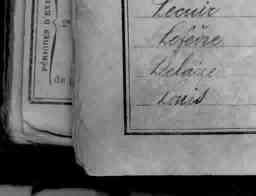 PÉRIODES D'EXE
de
Lecuir
Lefèvre
Delaire
Louis